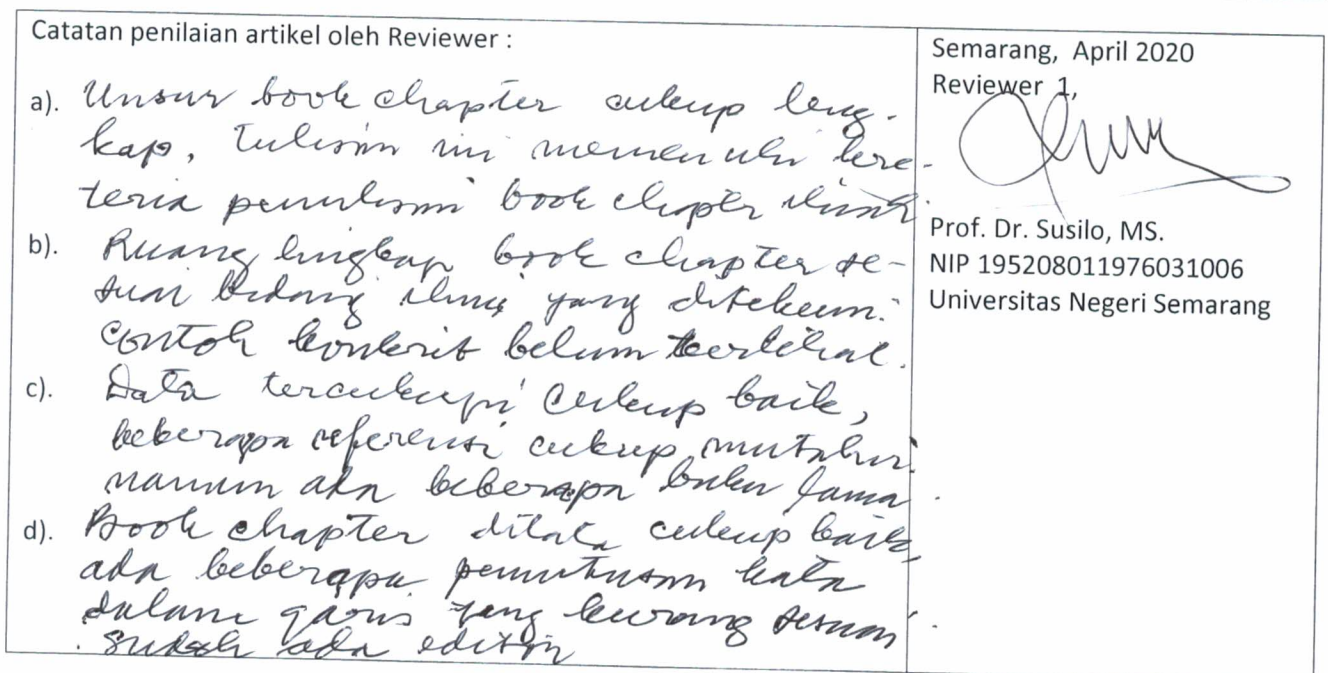 Catatan penilaian artikel oleh Reviewer :
a). Unsur book chapter cukup leng-
kap, tulisan ini memenuhi kre-
teria penulisan book chapter ilmiah
b). Ruang lingkup book chapter se-
suai bidang ilmu yang ditekuni.
Contoh konkrit belum terlihat.
c). Data tercukupi cukup baik,
beberapa referensi cukup mutahir.
namun ada beberapa buku lama.
d). Book chapter ditata cukup baik,
ada beberapa pemutusan kata
dalam garis yang kurang sesuai.
sudah ada editor
Semarang, April 2020
Reviewer 1,
Prof. Dr. Susilo, MS.
NIP 195208011976031006
Universitas Negeri Semarang